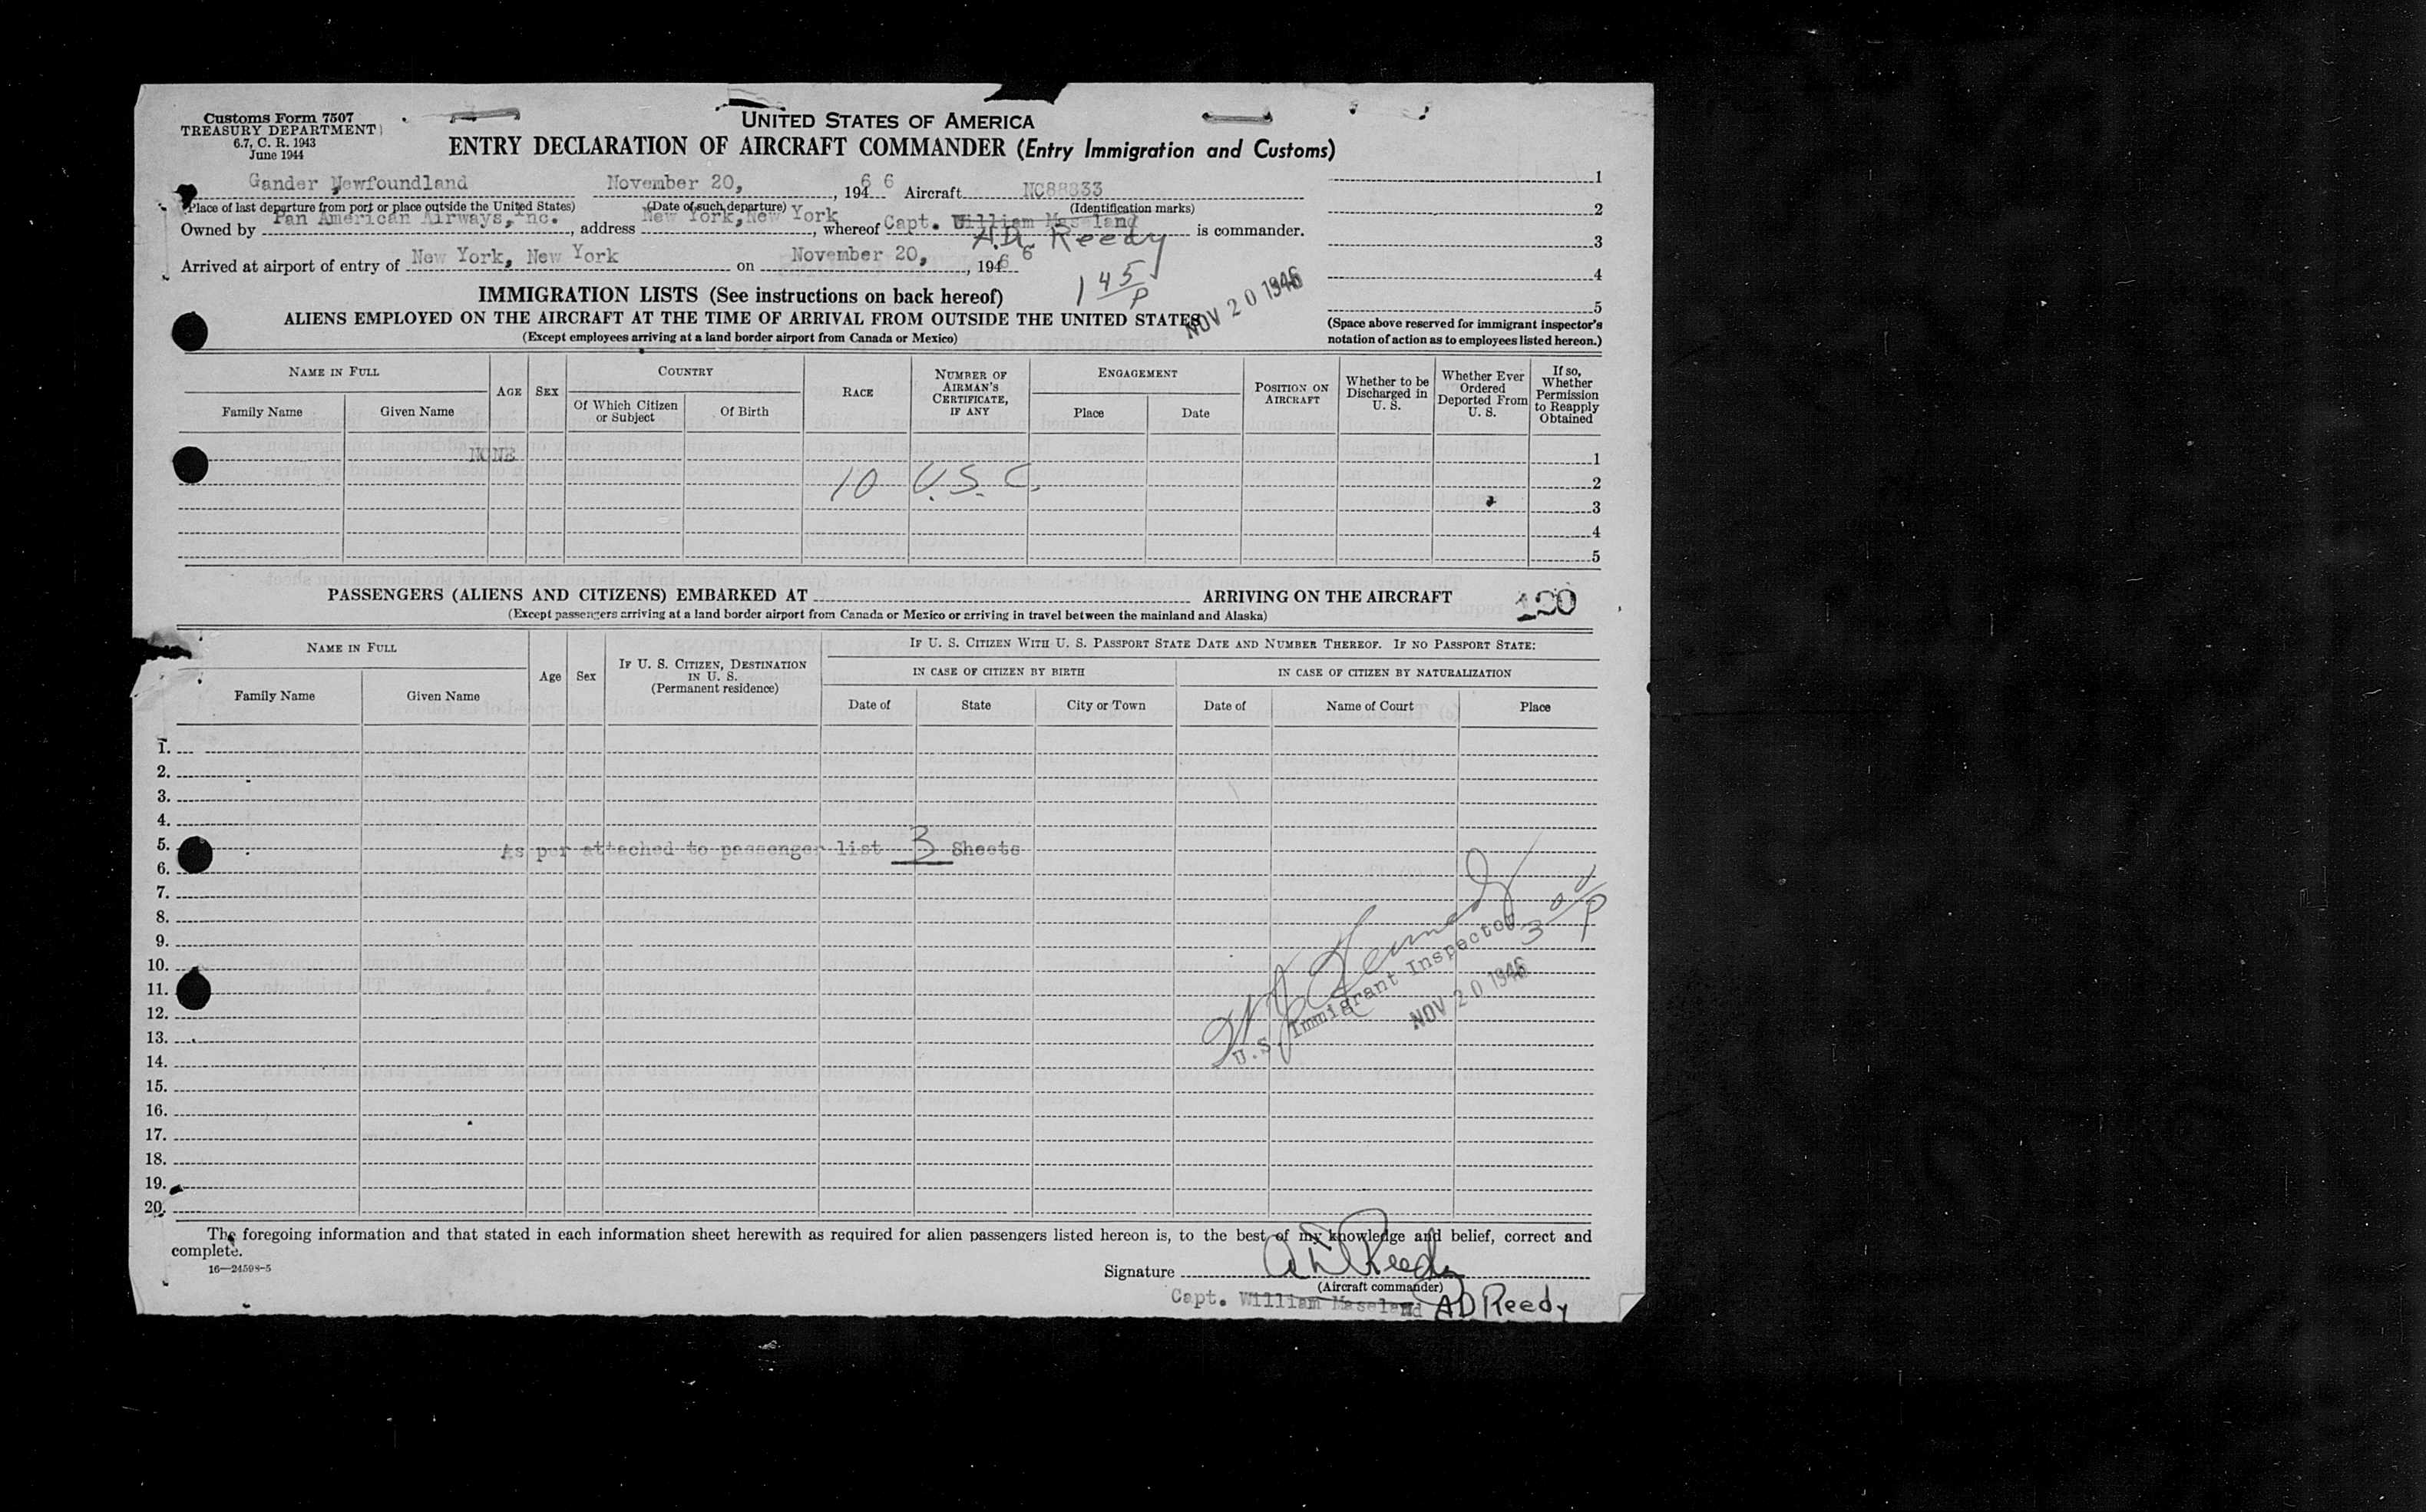 Customs Form 7507
TREASURY DEPARTMENT
6.7, C. R. 1943
June 1944
UNITED STATES OF AMERICA
ENTRY DECLARATION OF AIRCRAFT COMMANDER (Entry Immigration and Customs)
Gander Newfoundland November 20, 1946 6 Aircraft NC88833
(Place of last departure from port or place outside the United States) (Date of such departure) (Identification marks)
Owned by Pan American Airways, Inc., address New York, New York, whereof Capt. William Maseland is commander.
A.D. Reedy
Arrived at airport of entry of New York, New York on November 20, 1946 6
1 45/P
NOV 20 1946
1
2
3
4
5
(Space above reserved for immigrant inspector's notation of action as to employees listed hereon.)
IMMIGRATION LISTS (See instructions on back hereof)
ALIENS EMPLOYED ON THE AIRCRAFT AT THE TIME OF ARRIVAL FROM OUTSIDE THE UNITED STATES
(Except employees arriving at a land border airport from Canada or Mexico)
NAME IN FULL
Family Name Given Name
AGE SEX
COUNTRY
Of Which Citizen or Subject Of Birth
RACE
NUMBER OF AIRMAN'S CERTIFICATE, IF ANY
ENGAGEMENT
Place Date
POSITION ON AIRCRAFT
Whether to be Discharged in U. S.
Whether Ever Ordered Deported From U. S.
If so, Whether Permission to Reapply Obtained
NONE 1
10 U.S.C. 2
3
4
5
PASSENGERS (ALIENS AND CITIZENS) EMBARKED AT ARRIVING ON THE AIRCRAFT
(Except passengers arriving at a land border airport from Canada or Mexico or arriving in travel between the mainland and Alaska)
NAME IN FULL
Family Name Given Name
Age Sex
IF U. S. CITIZEN, DESTINATION IN U. S.
(Permanent residence)
IF U. S. CITIZEN WITH U. S. PASSPORT STATE DATE AND NUMBER THEREOF. IF NO PASSPORT STATE:
IN CASE OF CITIZEN BY BIRTH IN CASE OF CITIZEN BY NATURALIZATION
Date of State City or Town Date of Name of Court Place
1.
2.
3.
4.
5.
As per attached to passenger list 3 Sheets
6.
7.
8.
9.
10.
11.
12.
13.
14.
15.
16.
17.
18.
19.
20.
U.S. Immigrant Inspector
NOV 20 1946
The foregoing information and that stated in each information sheet herewith as required for alien passengers listed hereon is, to the best of my knowledge and belief, correct and
complete.
16—24598-5
Signature AD Reedy
(Aircraft commander)
Capt. William Maseland AD Reedy